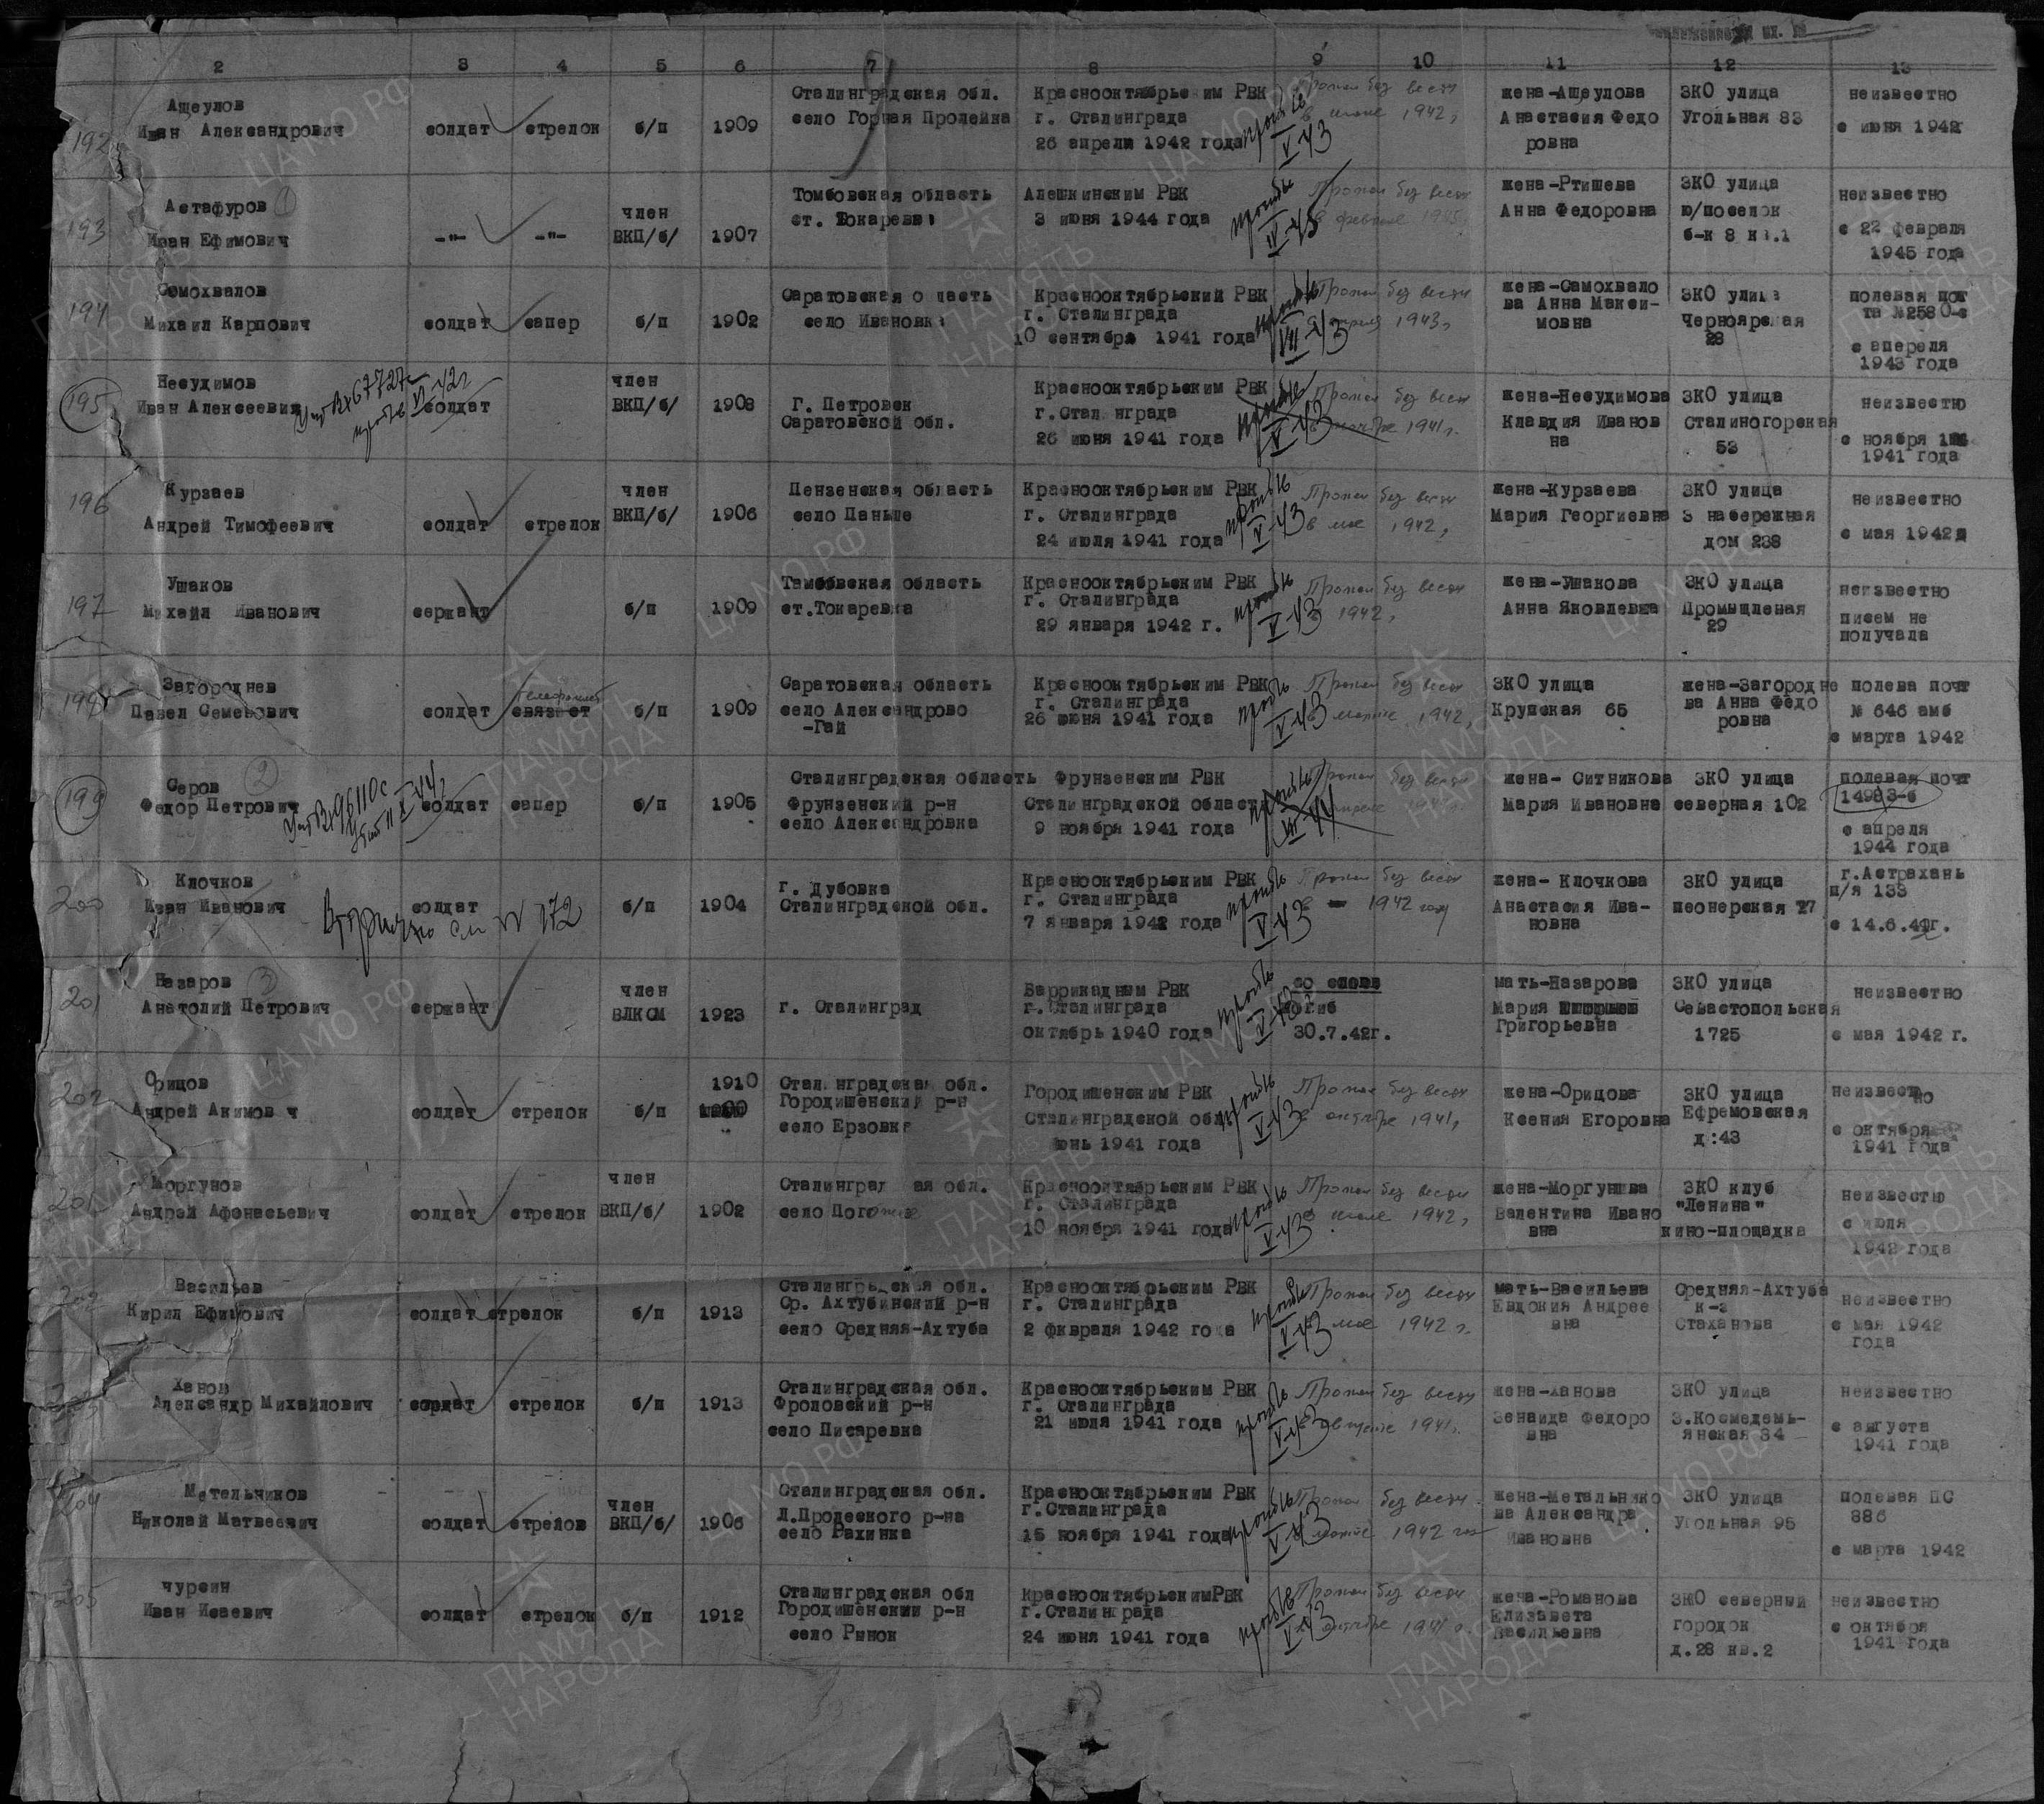 2 3 4 5 6 7 8 9 10 11 12 13
192 Ащеулов Иван Александрович солдат стрелок б/п 1909
Сталинградская обл. село Горная Пролейка
Краснооктябрьским РВК г. Сталинграда 26 апреля 1942 года
Пропал без вести в июне 1942г
жена-Ащеулова Анастасия Федоровна
ЗКО улица Угольная 83
неизвестно с июня 1942г
193 Астафуров Иван Ефимович -"- -"- член ВКП/б/ 1907
Томбовская область ст. Токарева
Алешкинским РВК 3 июня 1944 года
Пропал без вести в феврале 1945
жена-Ртишева Анна Федоровна
ЗКО улица ю/поселок б-к 8 кв.1
неизвестно с 22 февраля 1945 года
194 Самохвалов Михаил Карпович солдат сапер б/п 1902
Саратовская область село Ивановка
Краснооктябрьский РВК г. Сталинграда 10 сентября 1941 года
Пропал без вести апреле 1943г
жена-Самохвалова Анна Максимовна
ЗКО улица Черноярская 28
полевая почта с апереля 1943 года
195 Несудимов Иван Алексеевич солдат член ВКП/б/ 1908
Г. Петровск Саратовской обл.
Краснооктябрьским РВК г.Сталинграда 26 июня 1941 года
Пропал без вести в ноябре 1941г.
жена-Несудимова Клавдия Ивановна
ЗКО улица Сталиногорская 53
неизвестно с ноября 1941 года
196 Курзаев Андрей Тимофеевич солдат стрелок член ВКП/б/ 1906
Пензенская область село Паньше
Краснооктябрьским РВК г. Сталинграда 24 июля 1941 года
Пропал без вести в мае 1942г
жена-Курзаева Мария Георгиевна
ЗКО улица 3 набережная дом 238
неизвестно с мая 1942
197 Ушаков Михайл Иванович сержант б/п 1909
Тамбовская область ст.Токаревка
Краснооктябрьским РВК г. Сталинграда 29 января 1942 г.
Пропал без вести 1942г
жена-Ушакова Анна Яковлевна
ЗКО улица Промышленая 29
неизвестно писем не получала
198 Загороднев Павел Семенович солдат связист б/п 1909
Саратовская область село Александрово-Гай
Краснооктябрьским РВК г. Сталинграда 26 июня 1941 года
Пропал без вести в марте 1942г
ЗКО улица Крупская 65
жена-Загороднева Анна Федоровна
полева почт № 646 амб с марта 1942
199 Серов 2 Федор Петрович солдат сапер б/п 1905
Сталинградская область Фрунзенский р-н село Александровка
Фрунзенским РВК Сталинградской област 9 ноября 1941 года
Пропал без вести
жена- Ситникова Мария Ивановна
ЗКО улица северная 102
полевая почт с апреля 1944 года
200 Клочков Иван Иванович солдат б/п 1904
Вторично см N 172
г. Дубовка Сталинградской обл.
Краснооктябрьским РВК г. Сталинграда 7 января 1942 года
Пропал без вести в 1942 году
жена- Клочкова Анастасия Ивановна
ЗКО улица пеонерская 27
г.Астрахань п/я 133
201 Назаров 3 Анатолий Петрович сержант член ВЛКСМ 1923
г. Сталинград
Баррикадным РВК г.Сталинграда октябрь 1940 года
погиб 30.7.42г.
мать-Назарова Мария Григорьевна
ЗКО улица Севастопольская 1725
неизвестно с мая 1942 г.
202 Орицов Андрей Акимович солдат стрелок б/п 1910
Сталинградская обл. Городищенский р-н село Ерзовка
Городищенским РВК Сталинградской обл июнь 1941 года
Пропал без вести в октябре 1941г
жена-Орицова Ксения Егоровна
ЗКО улица Ефремовская д:43
неизвестно с октября 1941 года
201 Моргунов Андрей Афонасьевич солдат стрелок член ВКП/б/ 1902
Сталинградская обл. село Погожее
Краснооктябрьским РВК г. Сталинграда 10 ноября 1941 года
Пропал без вести в июле 1942г
жена-Моргунова Валентина Ивановна
ЗКО клуб "Ленина" кино-площадка
неизвестно с июля 1942 года
202 Васильев Кирил Ефимович солдат стрелок б/п 1913
Сталинградская обл. Ср. Ахтубинский р-н село Средняя-Ахтуба
Краснооктябрьским РВК г. Сталинграда 2 фквраля 1942 года
Пропал без вести мае 1942 г.
мать-Васильева Евдокия Андреевна
Средняя-Ахтуба к-з Стаханова
неизвестно с мая 1942 года
Ханов Александр Михайлович солдат стрелок б/п 1913
Сталинградская обл. Фроловский р-н село Писаревка
Краснооктябрьским РВК г. Сталинграда 21 июля 1941 года
Пропал без вести в августе 1941г.
жена-Ханова Зенаида Федоровна
ЗКО улица З.Космедемьянская 34
неизвестно с августа 1941 года
204 Метельников Николай Матвеевич солдат стрелов член ВКП/б/ 1906
Сталинградская обл. Л.Пролеского р-на село Рахинка
Краснооктябрьским РВК г.Сталинграда 15 ноября 1941 года
Пропал без вести в марте 1942 год
жена-Метальникова Александра Ивановна
ЗКО улица Угольная 95
полевая ПС 886 с марта 1942
205 Чурсин Иван Исаевич солдат стрелок б/п 1912
Сталинградская обл Городищенский р-н село Рынок
Краснооктябрьским РВК г.Сталинграда 24 июня 1941 года
Пропал без вести октябре 1941 г.
жена-Романова Елизавета Васильевна
ЗКО северный городок д.28 кв.2
неизвестно с октября 1941 года
ЦАМО РФ
ПАМЯТЬ НАРОДА